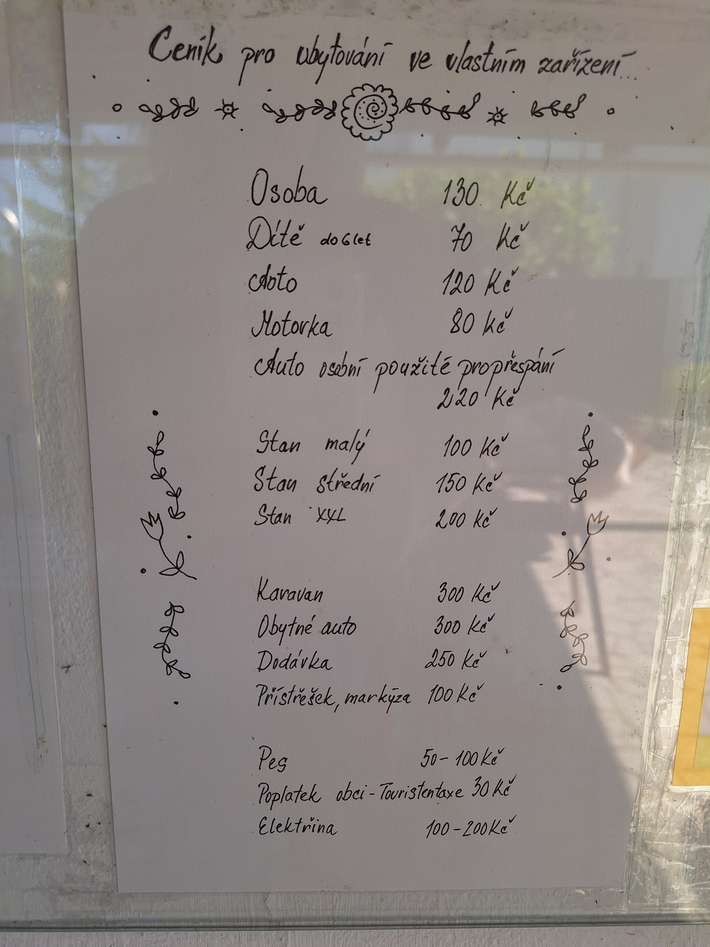 Ceník pro ubytování ve vlastním zařízení...
Osoba 130 Kč
Dítě do 6 let 70 Kč
Auto 120 Kč
Motorka 80 Kč
Auto osobní použité pro přespání
220 Kč
Stan malý 100 Kč
Stan střední 150 Kč
Stan XXL 200 Kč
Karavan 300 Kč
Obytné auto 300 Kč
Dodávka 250 Kč
Přístřešek, markýza 100 Kč
Pes 50-100 Kč
Poplatek obci - Touristentaxe 30 Kč
Elektřina 100-200 Kč